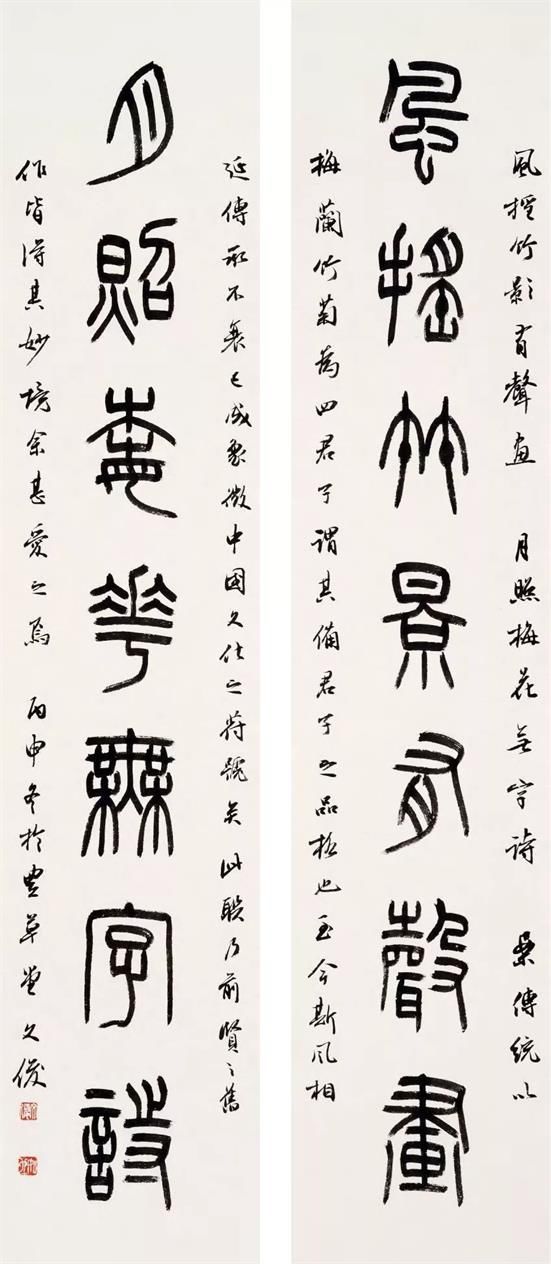 風搖竹影有聲畫 月照梅花無字詩 傳統以
風搖竹景有聲畫
梅蘭竹菊為四君子謂其備君子之品格也至今斯風相
延傳承不衰已成象徵中國文化之符號矣此聯乃前賢之舊
月照梅華無字詩
作皆得其妙境余甚愛之焉 丙申冬於豐草堂 文俊